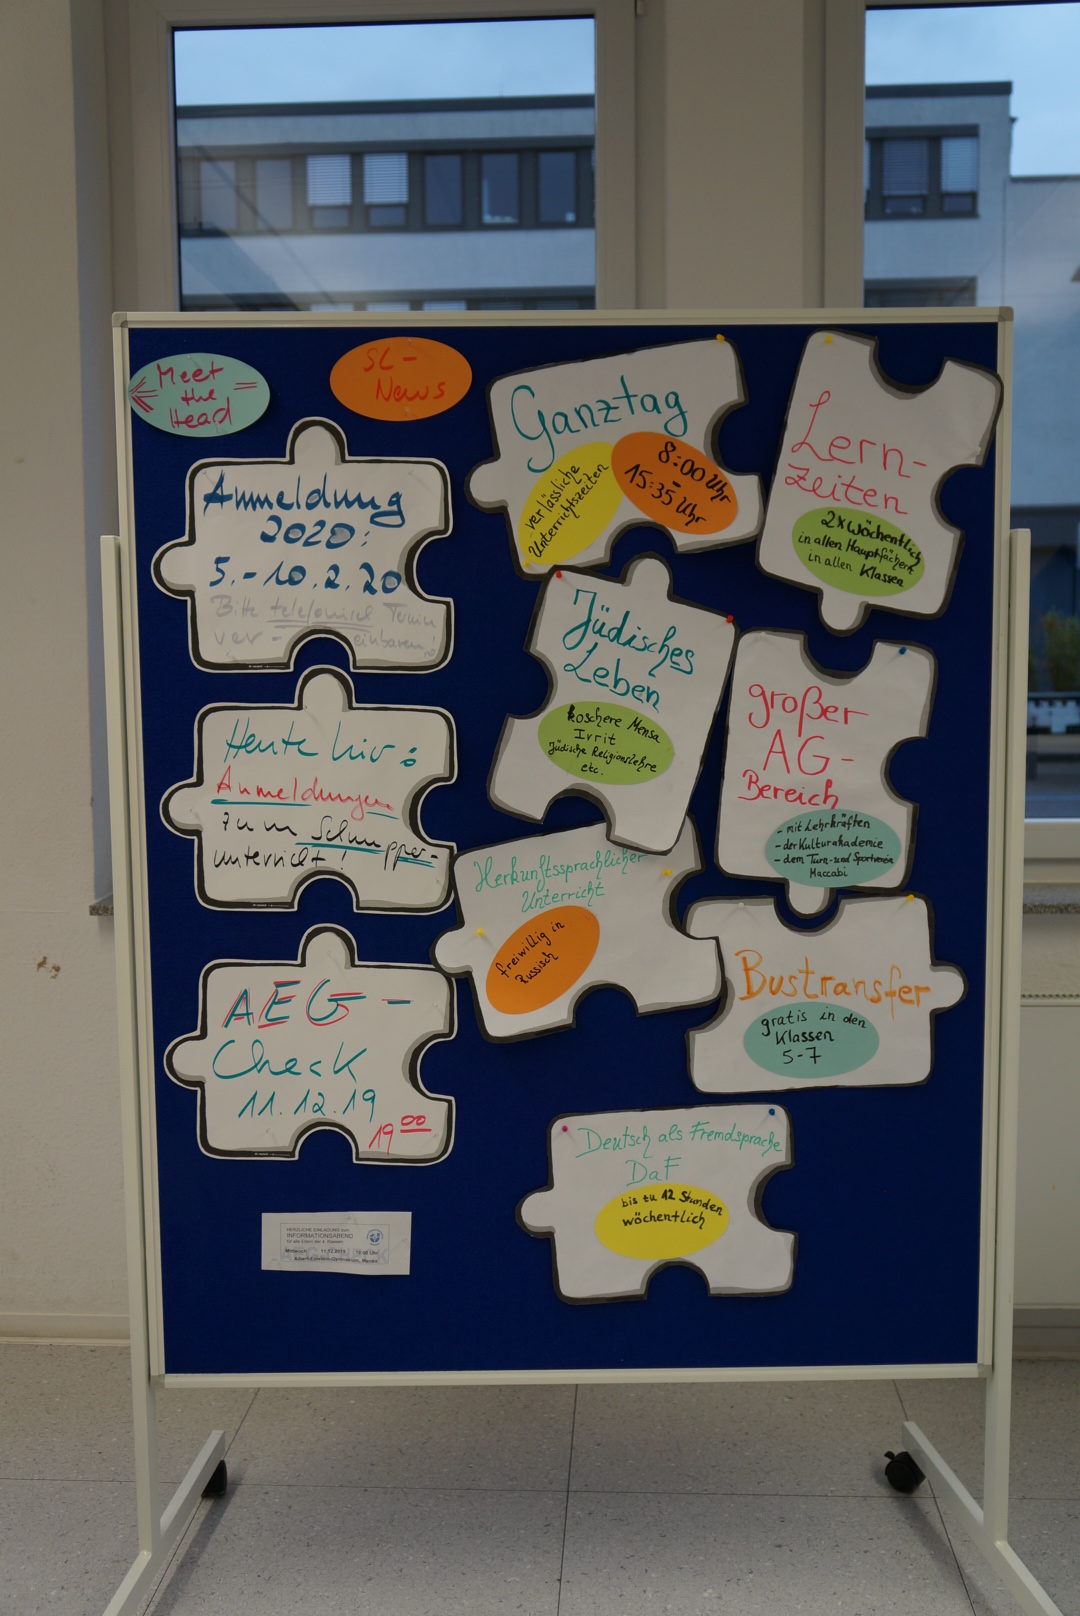 Meet
the
Head
SL-
News
Anmeldung
2020:
5.-10.2.20
Bitte telefonisch Termin
ver- einbaren!
Heute hier:
Anmeldungen
zum Schnupper-
unterricht!
AEG-
Check
11.12.19
19 00
HERZLICHE EINLADUNG zum
INFORMATIONSABEND
für alle Eltern der 4. Klassen
Mittwoch 11.12.2019 19:00 Uhr
Albert-Einstein-Gymnasium,
Ganztag
verlässliche
Unterrichtszeiten
8:00 Uhr
-
15:35 Uhr
Lern-
zeiten
2x wöchentlich
in allen Hauptfächern
in allen Klassen
Jüdisches
Leben
koschere Mensa
Ivrit
Jüdische Religionslehre
etc.
großer
AG-
Bereich
- mit Lehrkräften
- der Kulturakademie
- dem Turn- und Sportverein
Maccabi
Herkunftssprachlicher
Unterricht
freiwillig in
Russisch
Bustransfer
gratis in den
Klassen
5-7
Deutsch als Fremdsprache
DaF
bis zu 12 Stunden
wöchentlich